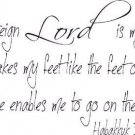 eign Lord is m
akes my feet like the feet o
e enables me to go on the
Habakkuk